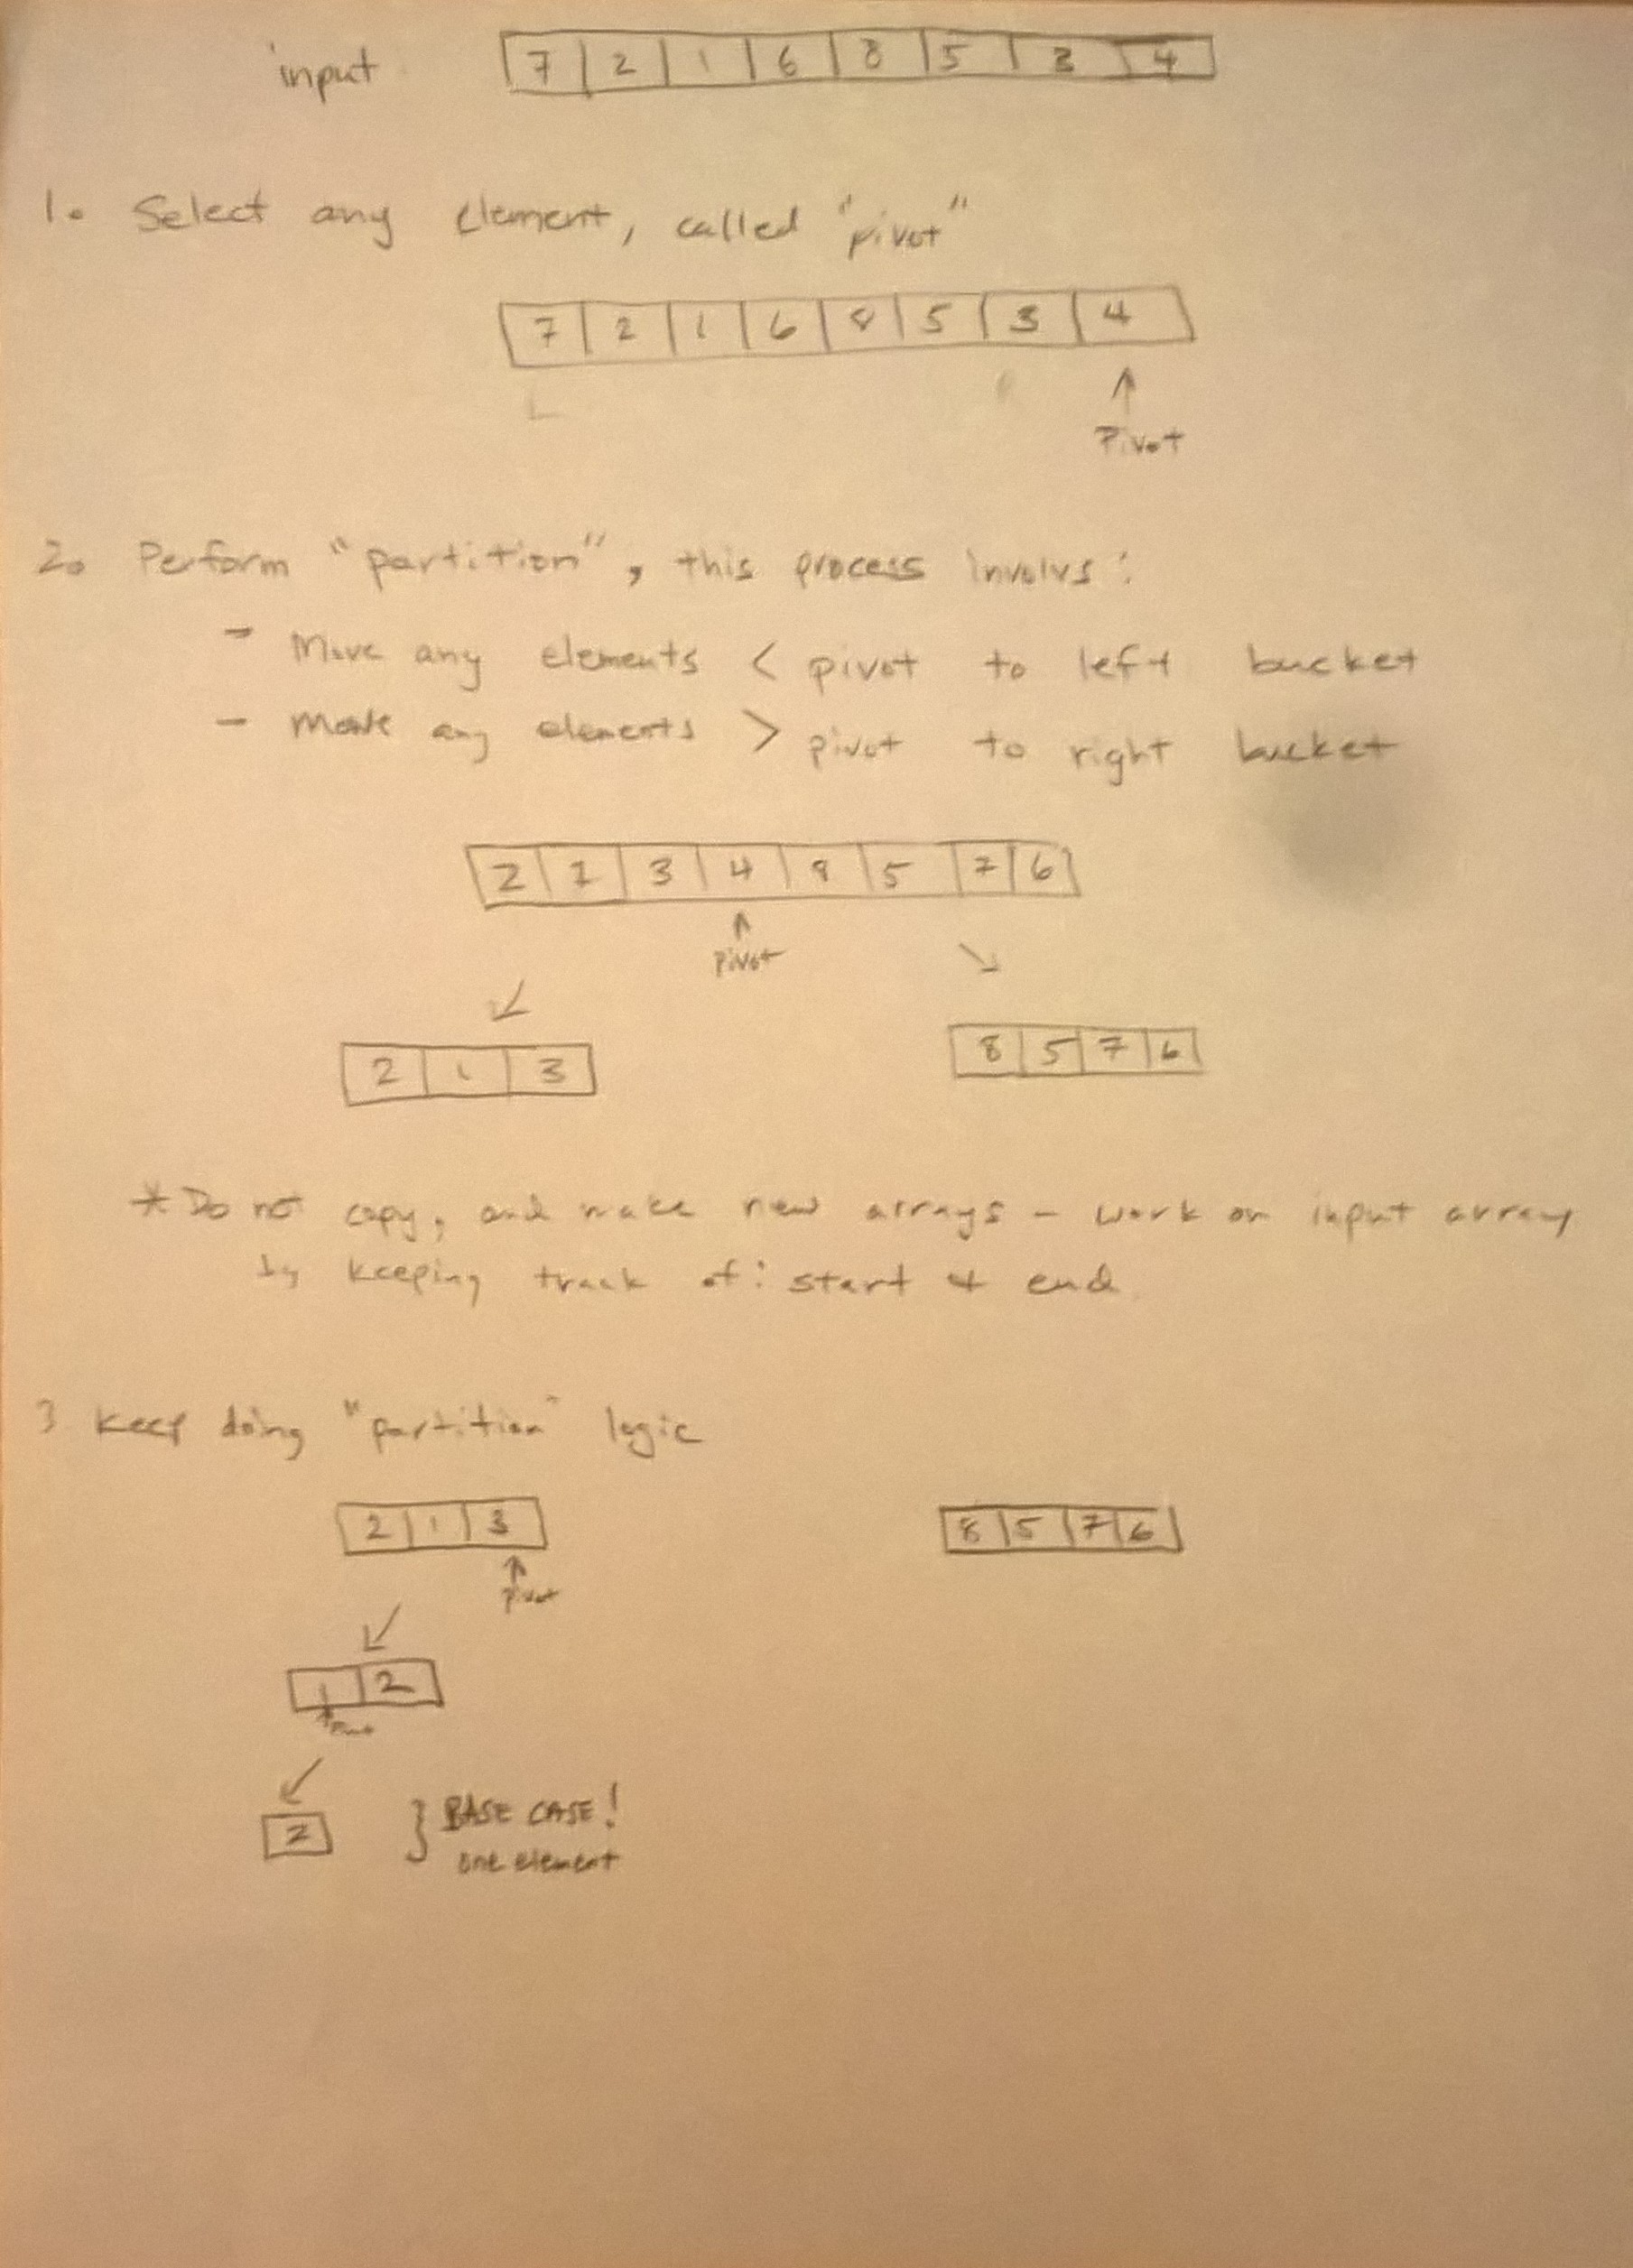 input 7 2 1 6 8 5 3 4
1. Select any element, called "pivot"
7 2 1 6 8 5 3 4
Pivot
2. Perform "partition", this process involvs:
- Move any elements < pivot to left bucket
- Move any elements > pivot to right bucket
2 1 3 4 8 5 7 6
pivot
2 1 3 8 5 7 6
* Do not copy, and make new arrays - work on input array
by keeping track of: start & end
3 keep doing "partition" logic
2 1 3 8 5 7 6
pivot
1 2
2 } BASE CASE!
one element